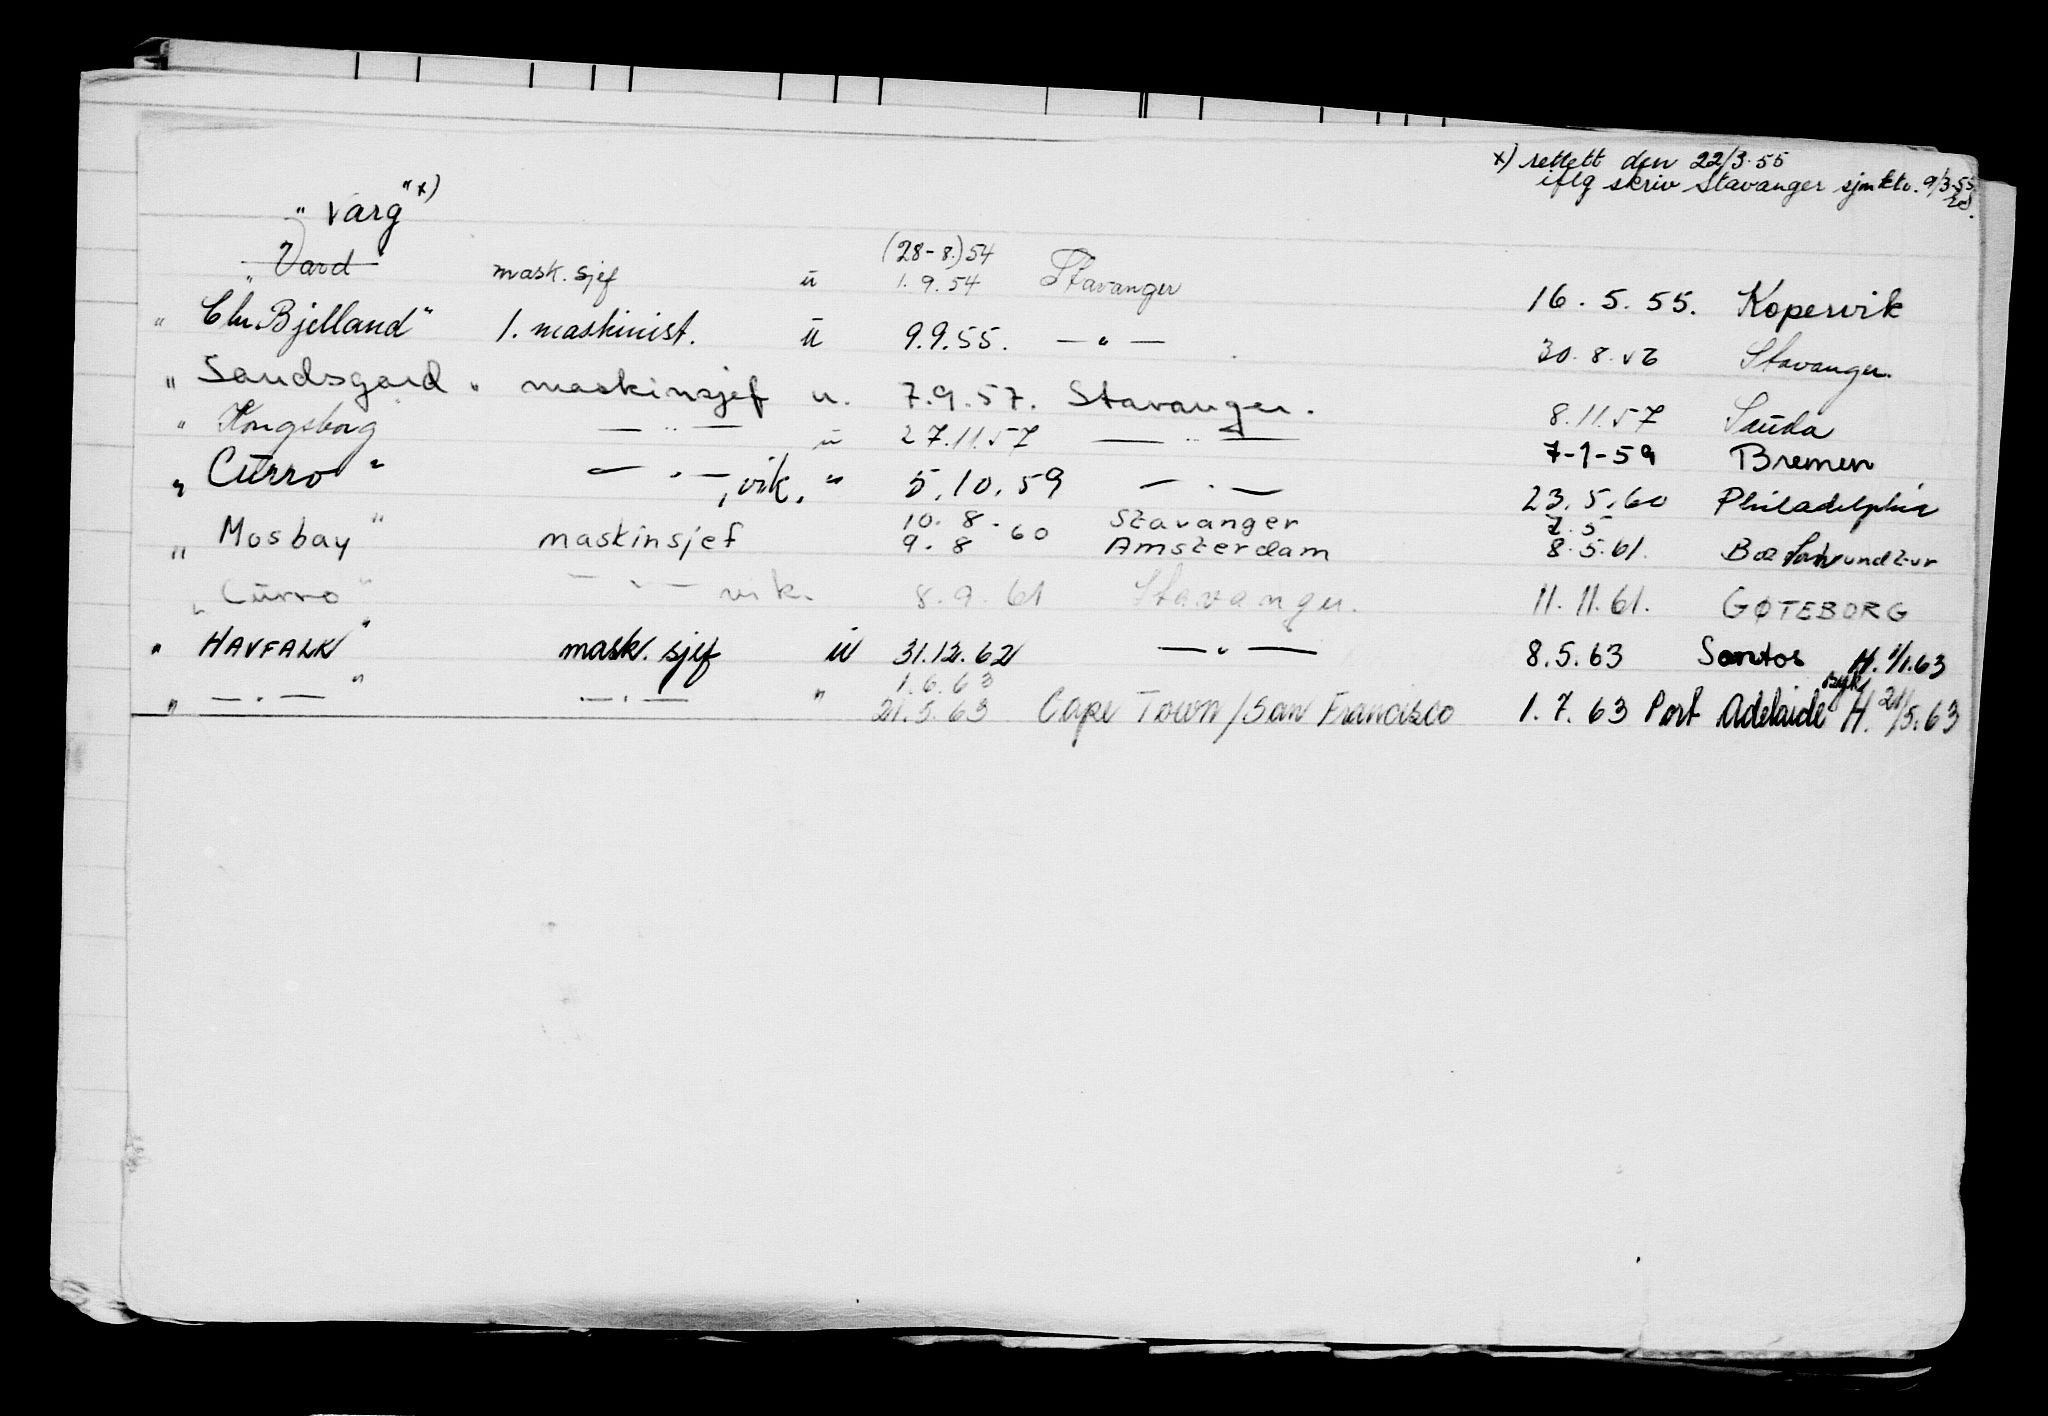 x) rettett den 22/3-55
iflg skriv Stavanger sjmktr. 9/3-55
"Varg" x)
"Vard mask. sjef u (28-8.) 54 1.9.54 Stavanger 16.5.55. Kopervik
" Chr. Bjelland" 1. maskinist. u 9.9.55. — " — 30.8.56 Stavanger.
" Sandsgard " maskinsjef u. 7.9.57. Stavanger. 8.11.57 Sauda
" Kongsborg — " — u 27.11.57 — " — 7-1-59 Bremen
" Curro " — " —, vik. " 5.10.59 — " — 23.5.60 Philadelphia
" Mosbay " maskinsjef 10.8.60 Stavanger 7.5
9.8 Amsterdam 8.5.61.
" Curro " — " — vik. 8.9.61 Stavanger. 11.11.61. GØTEBORG
" HAVFALK " mask. sjef u 31.12.62 — " — 8.5.63 Santos H. 1/1.63
" — " — " — " — " 1.6.63 syk
21.5.63 Cape Town / San Francisco 1.7.63 Port Adelaide H. 21/5.63